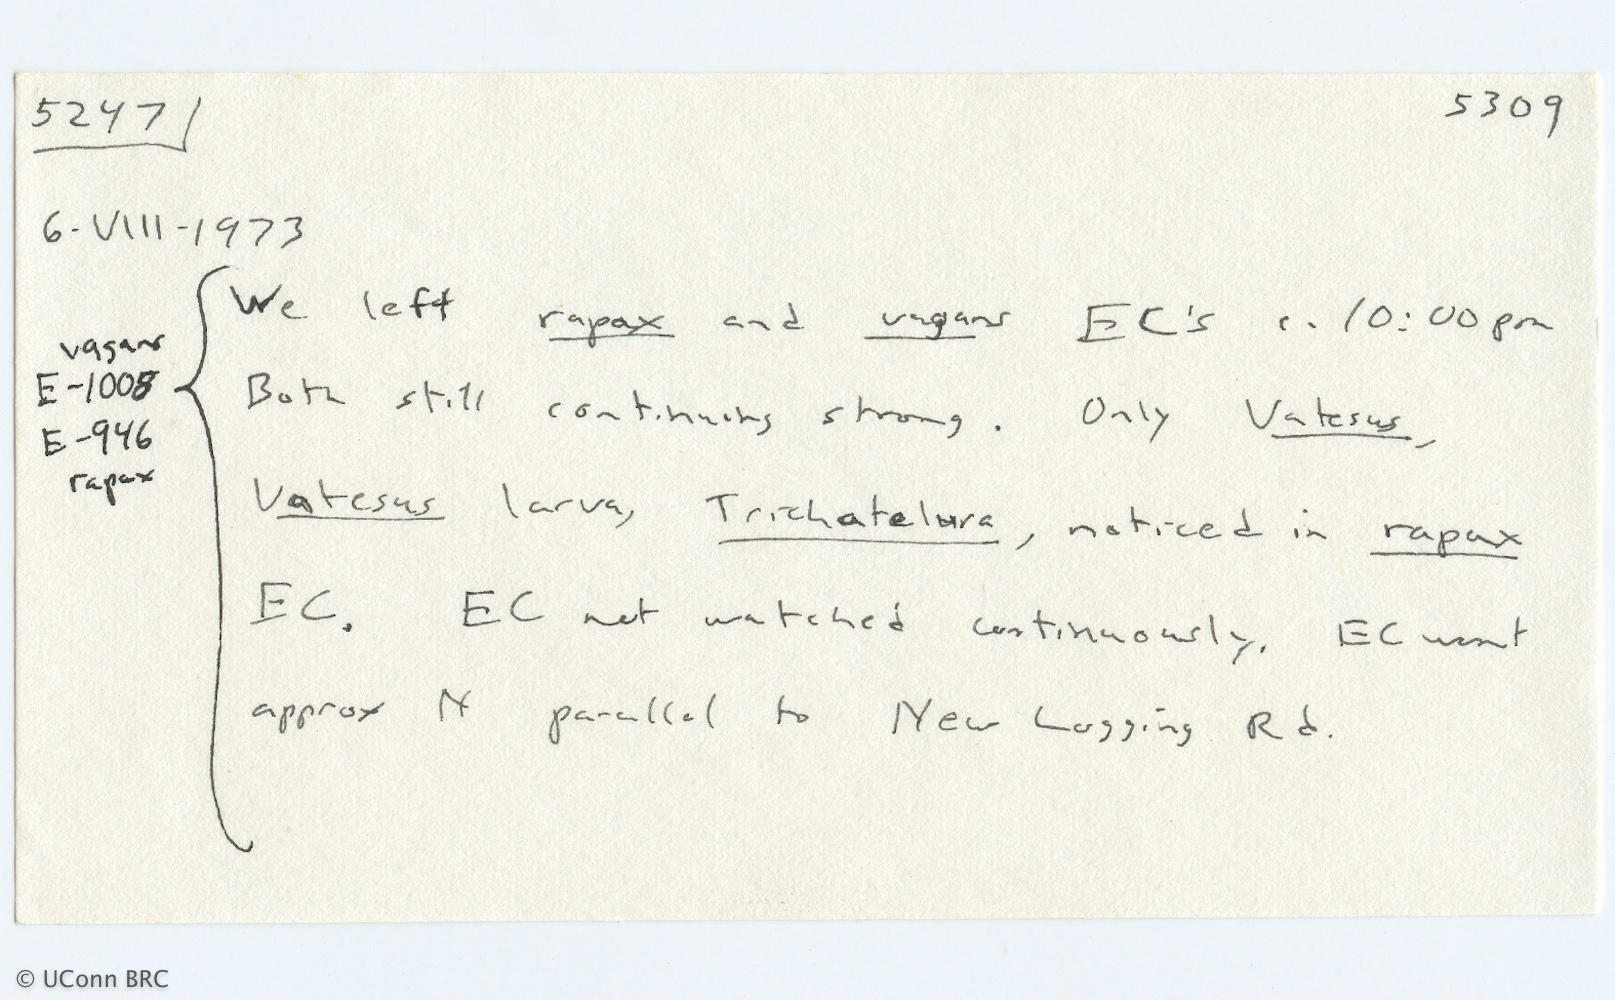 5247
5309
6-VIII-1973
We left rapax and vagans EC's c. 10:00 pm
Both still continuing strong. Only Vatesus,
Vatesus larva, Trichatelura, noticed in rapax
EC. EC not watched continuously. EC went
approx N parallel to New Logging Rd.
vagans
E-1008
E-946
rapax
© UConn BRC